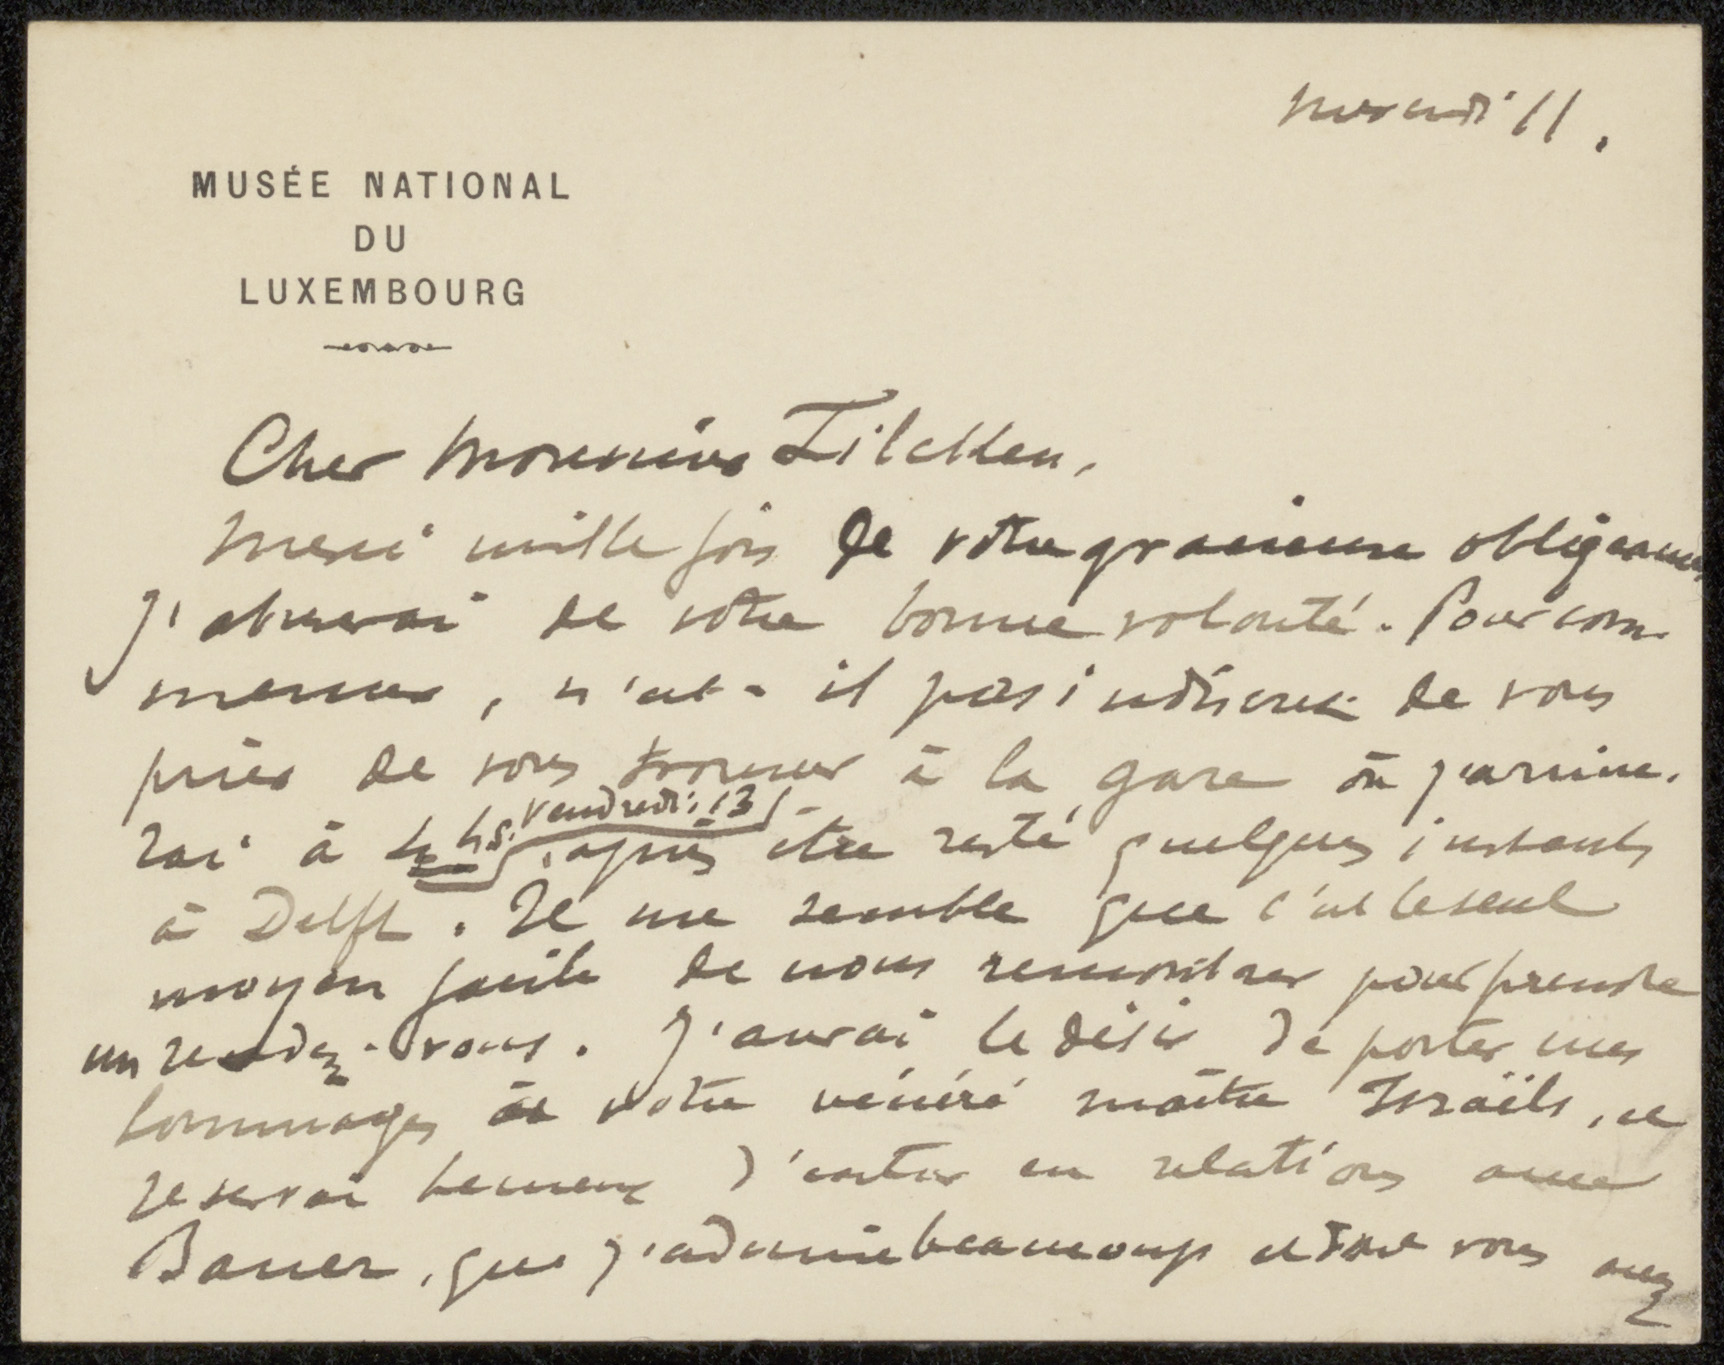 mercredi 11.
MUSÉE NATIONAL
DU
LUXEMBOURG
Cher Monsieur Zilcken,
Merci mille fois de votre gracieuse obligeance
J'abuserai de votre bonne volonté. Pour com-
mencer, n'est-il pas indiscret de vous
prier de vous trouver à la gare où j'arrive-
rai à 4 hs. vendredi 13, après être resté quelques instants
à Delft. Il me semble que c'est le seul
moyen facile de nous rencontrer pour prendre
un rendez-vous. J'aurai le désir de porter mes
hommages à votre vénéré maître Israëls, et
je serai heureux d'entrer en relations avec
Bauer, que j'admire beaucoup et dont vous avez